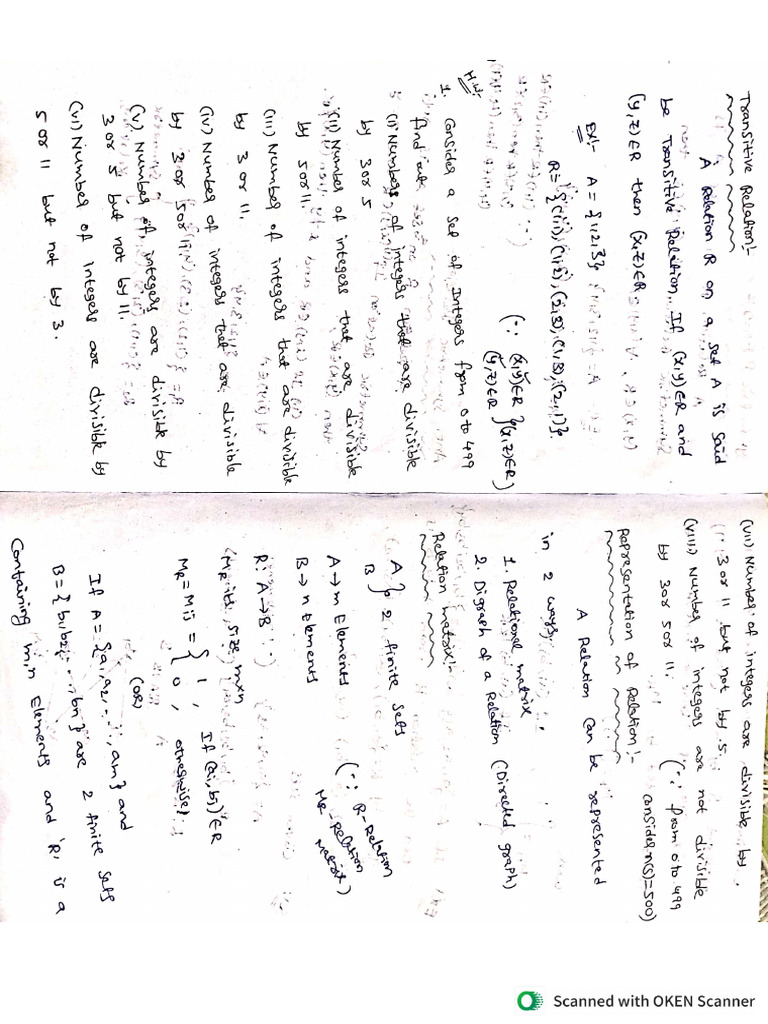 Transitive Relation:-
A Relation R on a set A is said
be Transitive Relation. If (x,y)∈R and
(y,z)∈R then (x,z)∈R
Ex:- A={1,2,3}
R={(1,1),(1,2),(2,3),(1,3),(2,1)}.
(∵ (x,y)∈R
(y,z)∈R }(x,z)∈R)
H.W:-
1. Consider a set of Integers from 0 to 499
find out
(i) Numbers of integers that are divisible
by 3 or 5
(ii) Number of integers that are divisible
by 5 or 11.
(iii) Number of integers that are divisible
by 3 or 11.
(iv) Number of integers that are divisible
by 3 or 5 or 11.
(v) Number of integers are divisible by
3 or 5 but not by 11.
(vi) Number of integers are divisible by
5 or 11 but not by 3.
(vii) Number of integers are divisible by
3 or 11 but not by 5.
(viii) Number of integers are not divisible
by 3 or 5 or 11. (∵ from 0 to 499
consider n(s)=500)
Representation of Relation:-
A Relation can be represented
in 2 ways
1. Relational matrix
2. Digraph of a Relation (Directed graph)
Relation matrix:-
A
B } 2 finite sets
A→m Elements (∵ R-Relation
B→n Elements MR-Relation
Matrix)
R: A→B
MR its size m×n
MR = Mij = { 1, If (ai,bj)∈R
0, otherwise
(OR)
If A={a1,a2,...,am} and
B={b1,b2,...,bn} are 2 finite sets
Containing m,n Elements and 'R' is a
Scanned with OKEN Scanner